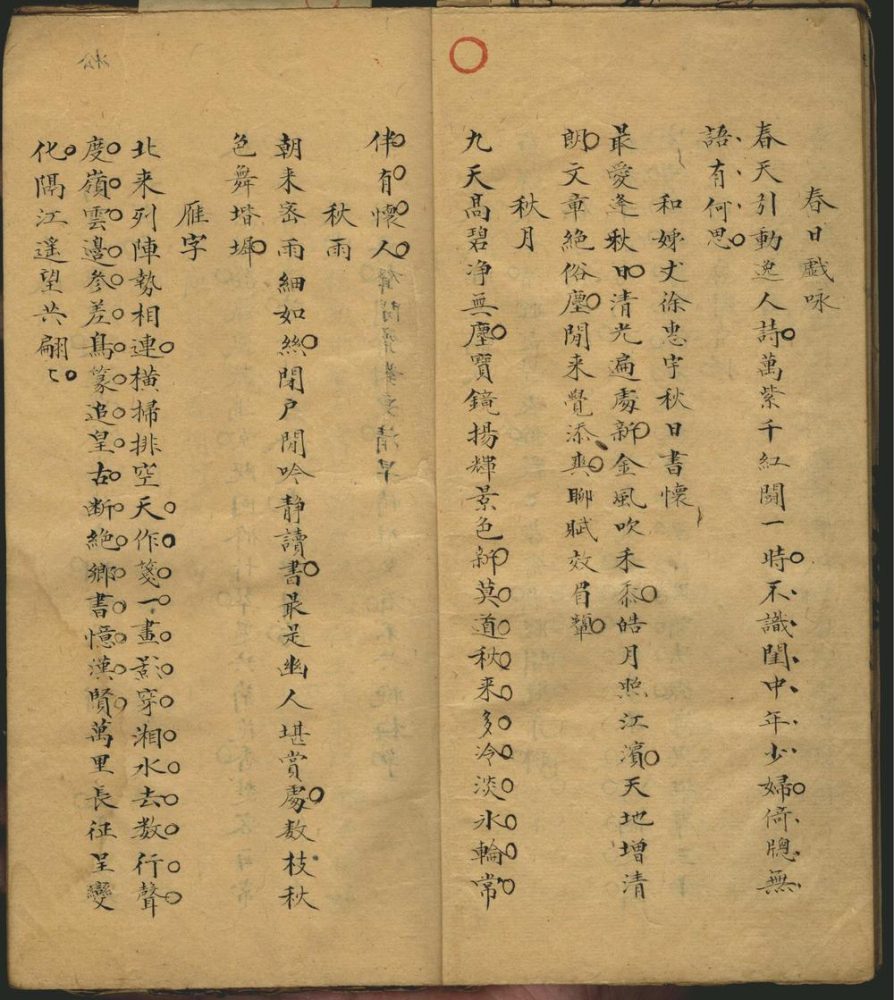 春日戲咏
春天引動逸人詩萬紫千紅鬪一時不識閨中年少婦倚牕無
語有何思
和姊丈徐忠宇秋日書懷
最愛逢秋日清光遍處新金風吹禾黍皓月照江濱天地增清
朗文章絕俗塵閒来覺添爽聊賦效眉顰
秋月
九天高碧净無塵寶鏡揚輝景色新莫道秋来多冷淡氷輪常
伴有懷人
秋雨
朝来密雨細如絲閉户閒吟静讀書最是幽人堪賞處数枝秋
色舞堦墀
雁字
北来列陣勢相連橫掃排空天作箋一畫影穿湘水去数行聲
度嶺雲邊參差鳥篆追皇古斷絶鄉書憶漢賢萬里長征呈變
化隔江遥望共翩〻